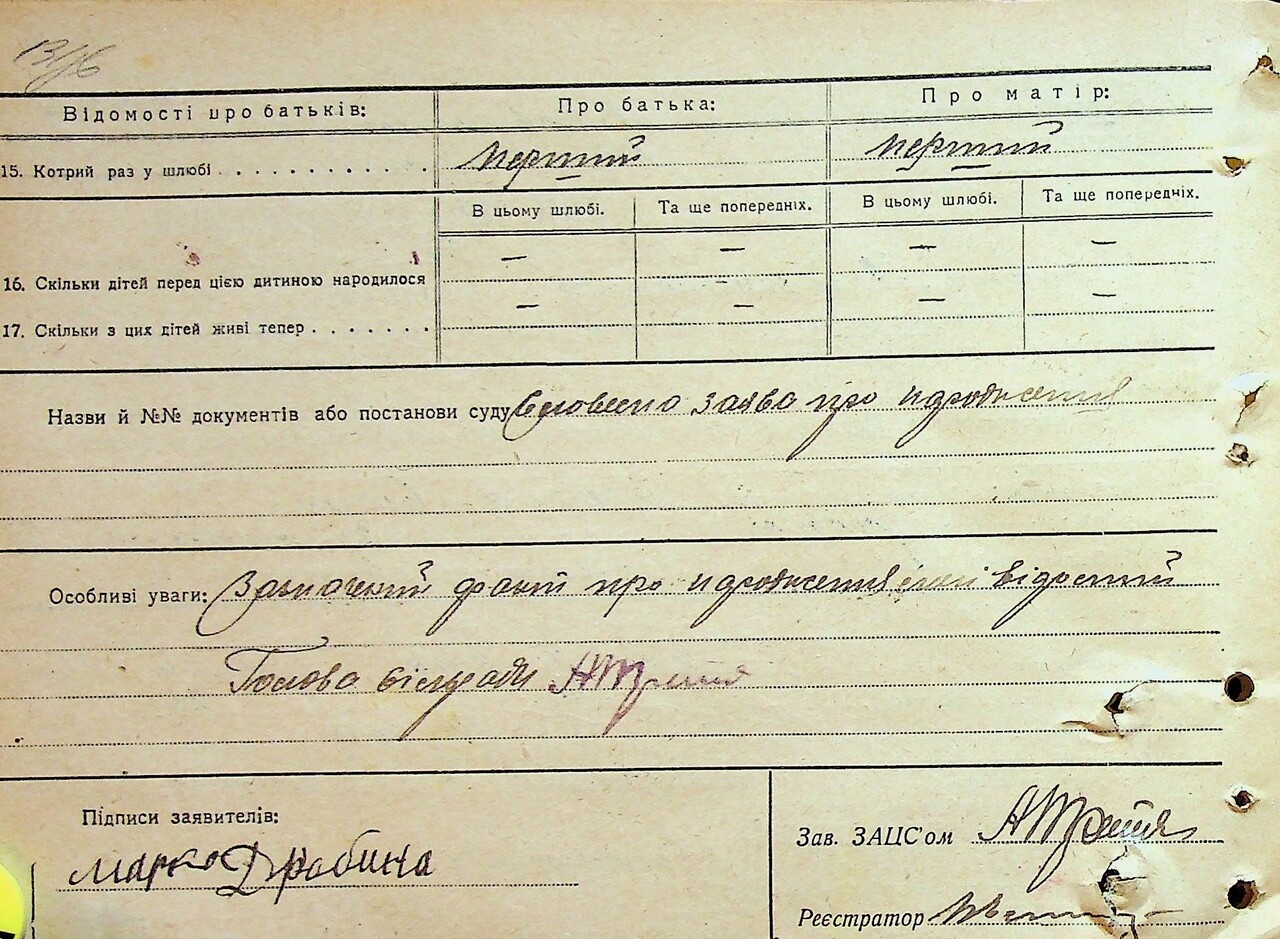 13/16
Відомості про батьків: Про батька: Про матір:
15. Котрий раз у шлюбі . . . . . . . . . . . . перший перший
В цьому шлюбі. Та ще попередніх. В цьому шлюбі. Та ще попередніх.
— — — —
16. Скільки дітей перед цією дитиною народилося
— — — —
17. Скільки з цих дітей живі тепер . . . . . . .
Назви й №№ документів або постанови суду Словесна заява про народження
Особливі уваги: Зазначений факт про народження мені відомий
Голова сільради
Підписи заявителів:
Марко Драбина
Зав. ЗАЦС'ом
Реєстратор